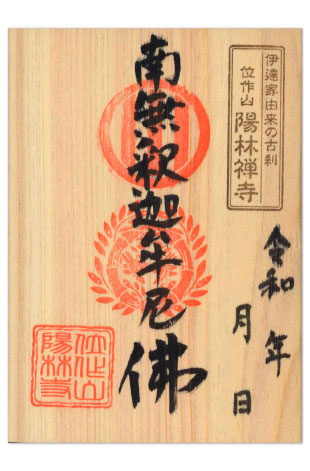 伊達家由来の古刹
位作山 陽林禅寺
令和 年
月 日
南無釈迦牟尼佛
位作山
陽林寺